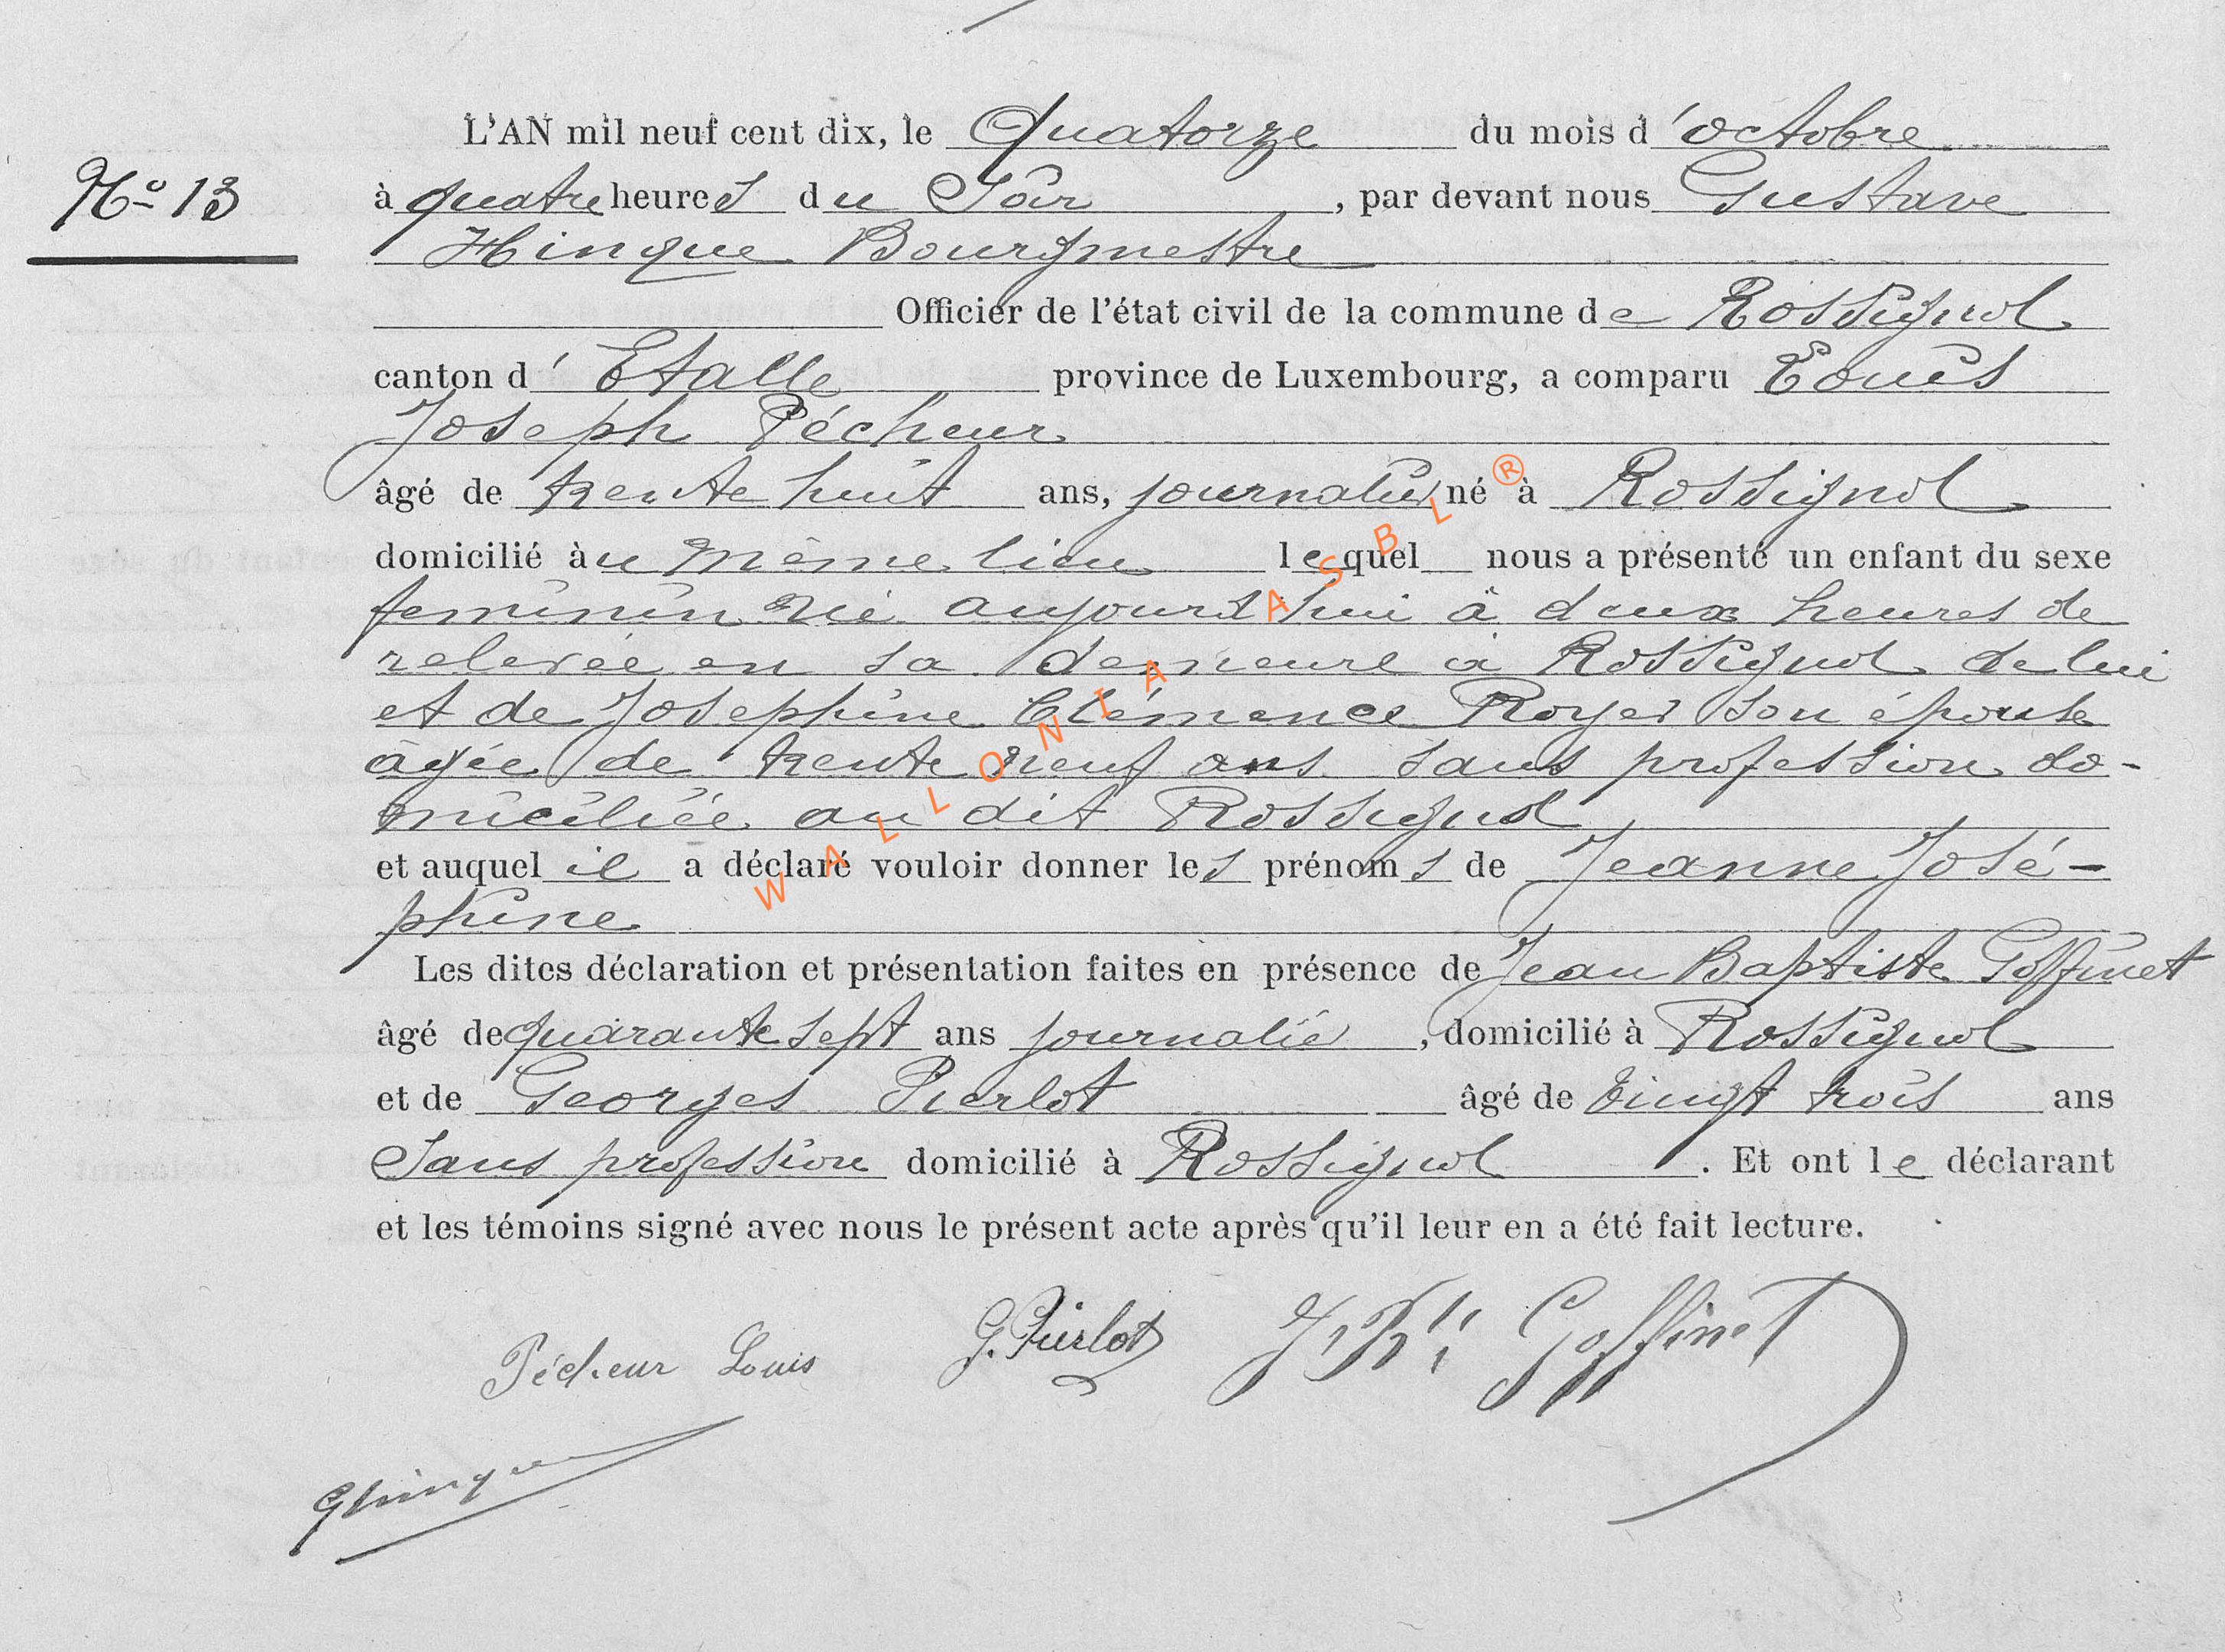 L'AN mil neuf cent dix, le Quatorze du mois d'octobre
N° 13
à quatre heures du Soir, par devant nous Gustave
Hinque Bourgmestre
Officier de l'état civil de la commune de Rossignol
canton d'Etalle province de Luxembourg, a comparu Louis
Joseph Pécheur
âgé de trente huit ans, journalier né à Rossignol
domicilié au même lieu lequel nous a présenté un enfant du sexe
feminin né aujourd'hui à deux heures de
relevée en sa demeure à Rossignol de lui
et de Josephine Clémence Royer son épouse
âgée de trente neuf ans sans profession do-
miciliée au dit Rossignol
et auquel il a déclaré vouloir donner les prénoms de Jeanne José-
phine
Les dites déclaration et présentation faites en présence de Jean Baptiste Goffinet
âgé de quarante sept ans journalier, domicilié à Rossignol
et de Georges Pierlot âgé de vingt trois ans
Sans profession domicilié à Rossignol. Et ont le déclarant
et les témoins signé avec nous le présent acte après qu'il leur en a été fait lecture.
Pécheur Louis G. Pierlot J. Bte Goffinet
GHinque
WALLONIA ASBL ®